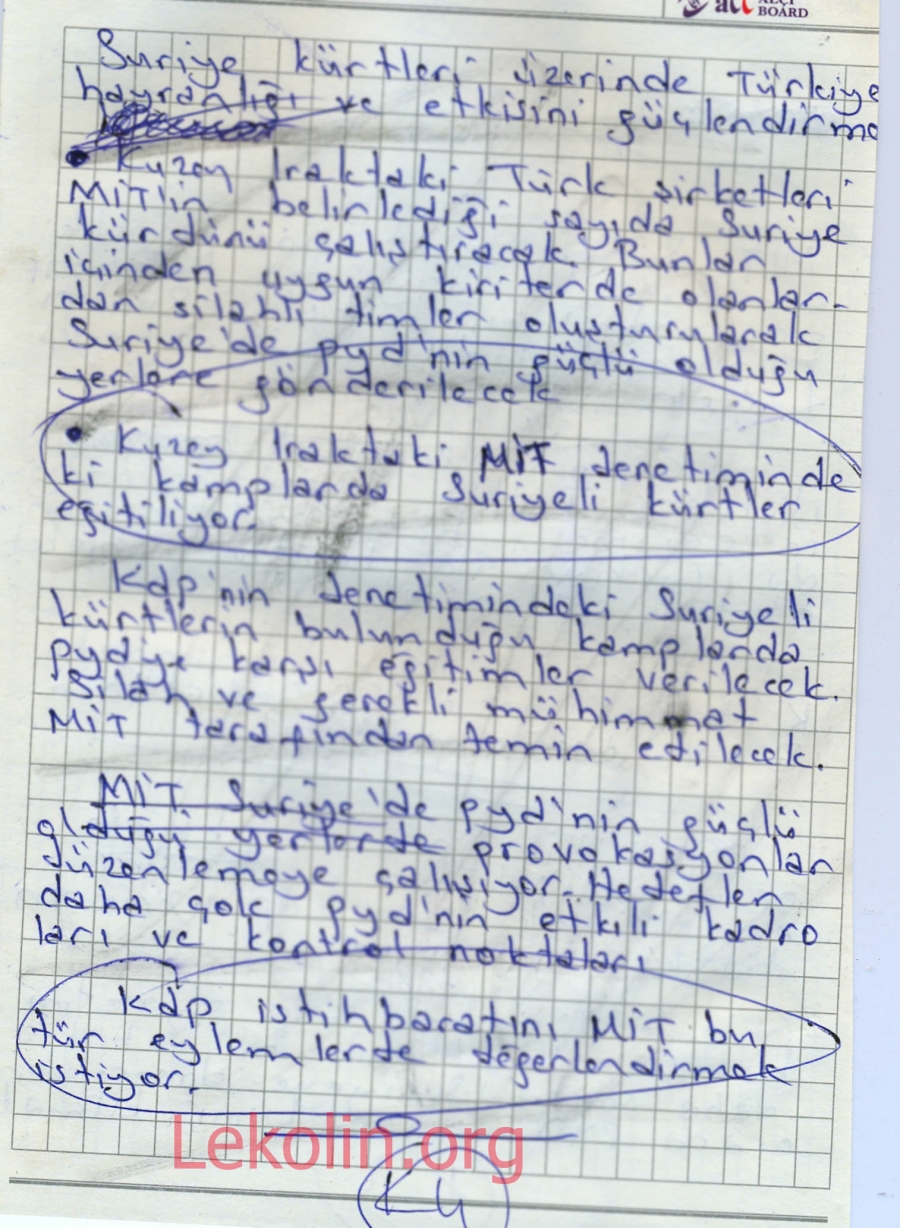 act ALÇI
BOARD
Suriye kürtleri üzerinde Türkiye
hayranlığı ve etkisini güçlendirme
• Kuzey Iraktaki Türk sirketleri
MİT'in belirlediği sayıda Suriye
kürdünü çalıstıracak. Bunlar
içinden uygun kiriterde olanlar-
dan silahlı timler olusturularak
Suriye'de pyd'nin güçlü olduğu
yerlere gönderilecek
• Kuzey Iraktaki MİT denetiminde
ki kamplarda Suriyeli kürtler
eğitiliyor.
Kdp'nin denetimindeki Suriyeli
kürtlerin bulunduğu kamplarda
pydye karşı eğitimler verilecek.
Silah ve gerekli mühimmat
MİT tarafından temin edilecek.
MİT Suriye'de pyd'nin güçlü
olduğu yerlerde provokasyonlar
düzenlemeye çalışıyor. Hedefler
daha çok pyd'nin etkili kadro
ları ve kontrol noktaları
Kdp istihbaratını MİT bu
tür eylemlerde değerlendirmek
istiyor.
Lekolin.org
K4